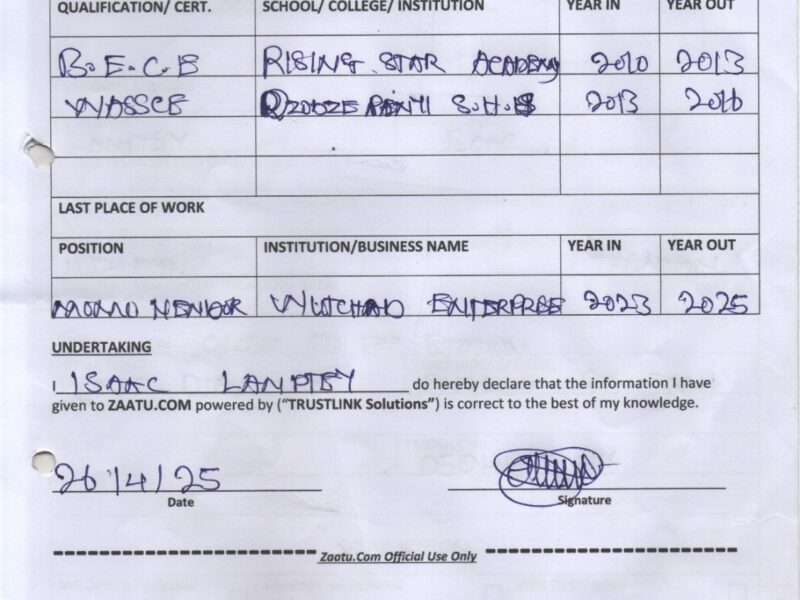 QUALIFICATION/ CERT. SCHOOL/ COLLEGE/ INSTITUTION YEAR IN YEAR OUT
B.E.C.E RISING STAR ACADEMY 2010 2013
WASSCE S.H.S 2013 2016
LAST PLACE OF WORK
POSITION INSTITUTION/BUSINESS NAME YEAR IN YEAR OUT
MOMO VENDOR ENTERPRISE 2023 2025
UNDERTAKING
I ISAAC LAMPTEY do hereby declare that the information I have
given to ZAATU.COM powered by ("TRUSTLINK Solutions") is correct to the best of my knowledge.
26/4/25
Date Signature
Zaatu.Com Official Use Only